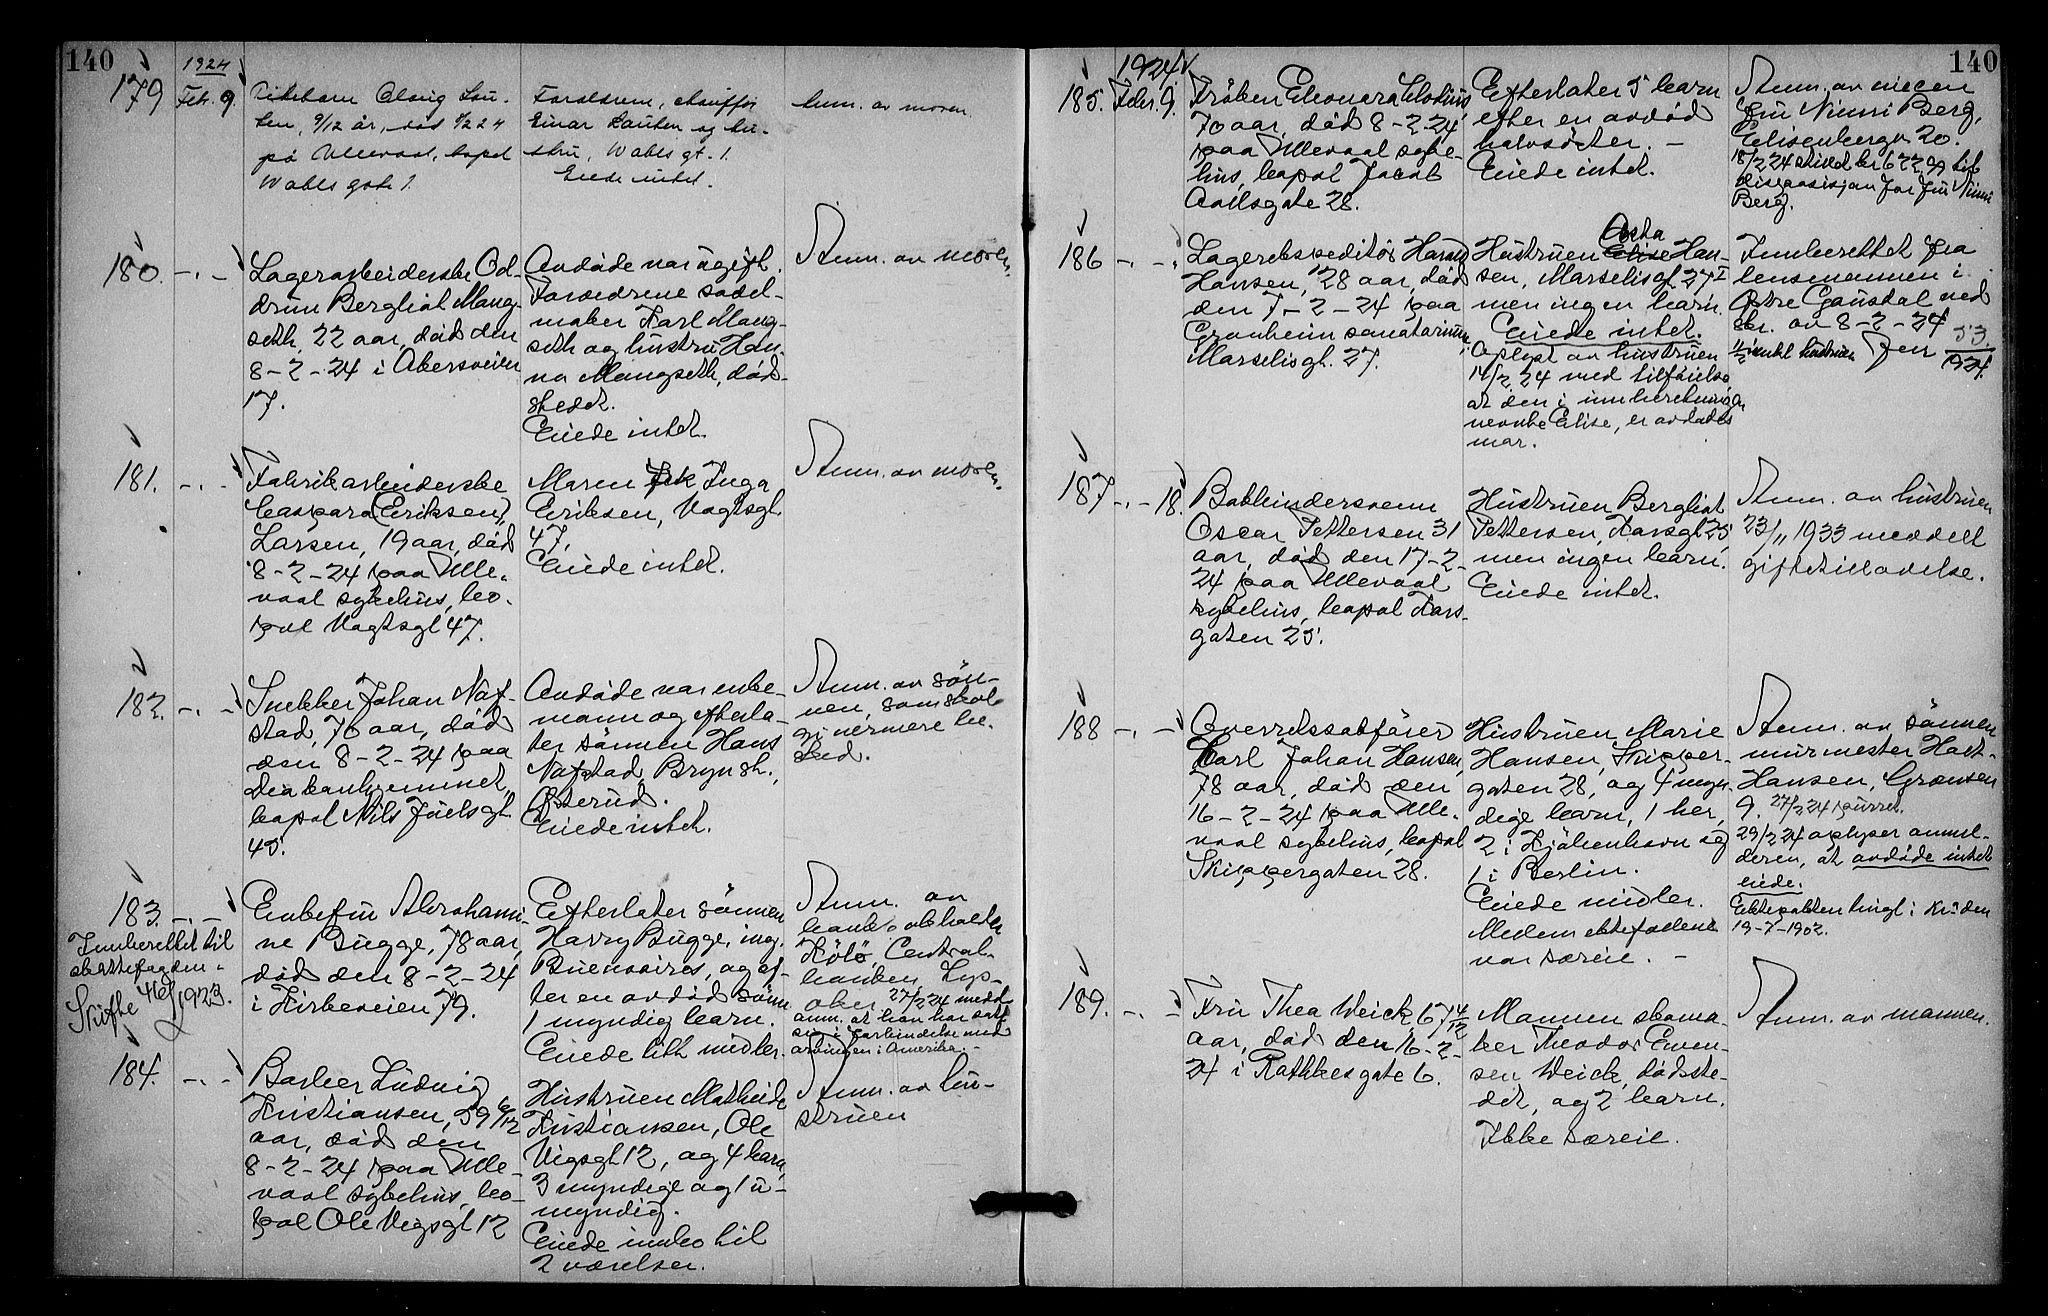 140
179
1924
Feb. 9.
Pikebarn Olaug Lau-
ten, 9/12 år, død 8/2 24
på Ullevaal, bopæl
Wabls gate 1.
Foreldrene, chauffør
Einar Lauten og hu-
stru, Wabls gt. 1.
Eiede intet.
Anm. av moren
180. -.-
Lagerarbeiderske Od-
drun Bergliot Mang-
seth, 22 aar, död den
8-2-24 i Akersveien
17.
Avdöde var ugift.
Forældrene sadel-
maker Karl Mang-
seth og hustru Han-
na Mangseth, död-
stedet.
Eiede intet.
Anm. av moren.
181. -.-
Fabrikarbeiderske
Caspara (Eriksen),
Larsen, 19 aar, död
8-2-24 paa Ulle-
vaal sykehus, bo-
pæl Vogtsgt 47.
Moren Inga
Eriksen, Vogtsgt.
47.
Eiede intet.
Anm. av moren.
182. -.-
Snekker Johan Naf-
stad, 76 aar, död
den 8-2-24 paa
Diakonhjemmet,
bopæl Nils Juelsgt
45.
Avdöde var enke-
mann og efterla-
ter sönnen Hans
Nafstad, Bryn st.,
Österud.
Eiede intet.
Anm. av sön-
nen, som skal
gi nærmere be-
sked.
183. -.-
Innberettet til
skattefogden.
Skifte 46/1923.
Enkefru Abrahami-
ne Bugge, 78 aar,
död den 8-2-24
i Kirkeveien 79.
Efterlater sönnen
Harry Bugge, ing.
Buenoaires, og ef-
ter en avdöd sönn
1 myndig barn.
Eiede litt midler.
Anm. av
bankbokholder
Central-
banken, Lys-
aker 27/2 24 medd.
anm. at han har satt
sig i forbindelse med
arvingen i Amerika. -
184. -.-
Barber Ludvig
Kristiansen, 59 6/12
aar, död den
8-2-24 paa Ulle-
vaal sykehus, bo-
pæl Ole Vigsgt 12
Hustruen Mathilde
Kristiansen, Ole
Vigsgt 12, og 4 barn,
3 myndige og 1 u-
myndig.
Eiede innbo til
2 værelser.
Anm. av hu-
struen
140
185.
1924
Febr. 9.
Fröken Eleonora Clodius,
70 aar, död 8-2-24,
paa Ullevaal syke-
hus, bopæl Jacob
Aallsgate 28.
Efterlater 5 barn
efter en avdöd
halvsöster. -
Eiede intet.
Anm. av niecen
fru Ninni Berg,
Elisenbergv 20.
18/2 24 skivet kr 622,99 til
disposisjon for fru Ninni
Berg.
186 -.-
Lagerekspeditör Harald
Hansen, 28 aar, död
den 7-2-24 paa
Granheim sanatorium,
Marselisgt. 27.
Asta
Hustruen Elise Han-
sen, Marselisgt 27 I
men ingen barn.
Eiede intet.
Oplyst av hustruen
14/2 24 med tilföielse
at den i innberetningen
nevnte Elise, er avdödes
mor.
Innberettet fra
lensmannen i
Östre Gausdal ved
skr. av 8-2-24
Jnr 53./1924.
187 -.- 18.
Bokbindersvenn
Oscar Pettersen 31
aar, död den 17-2-
24 paa Ullevaal
sykehus, bopæl Kors-
gaten 25.
Hustruen Bergliot
Pettersen, Korsgt 25
men ingen barn.
Eiede intet.
Anm. av hustruen
23/11 1933 meddelt
giftetillatelse.
188 -.-
Overretssakförer
Karl Johan Hansen,
78 aar, död den
16-2-24 paa Ulle-
vaal sykehus, bopæl
Skippergaten 28.
Hustruen Marie
Hansen, Skipper-
gaten 28, og 4 myn-
dige barn, 1 her,
2 i Kjöbenhavn og
1 i Berlin.
Eiede midler.
Mellem ektefællene
var særeie. -
Anm. av sönnen
murmester Holt-
Hansen, Grænsen
9. 27/2 24 purret.
29/2 24 oplyser anmel-
deren, at avdöde intet
eiede.
Ektepakten tingl. i Kr.a den
19-7-1902.
189. -.-
Fru Thea Weick, 67 4/12
aar, död den 16-2-
24 i Rathkesgate 6.
Mannen skoma-
ker Theodor Even-
sen Weick, dödste-
det, og 2 barn.
Ikke særeie.
Anm. av mannen.